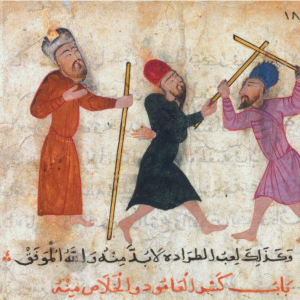 ١٨
وكذلك لعب الطراده لابد منه والله الموفق
باب كسر العامود والخلاص منه